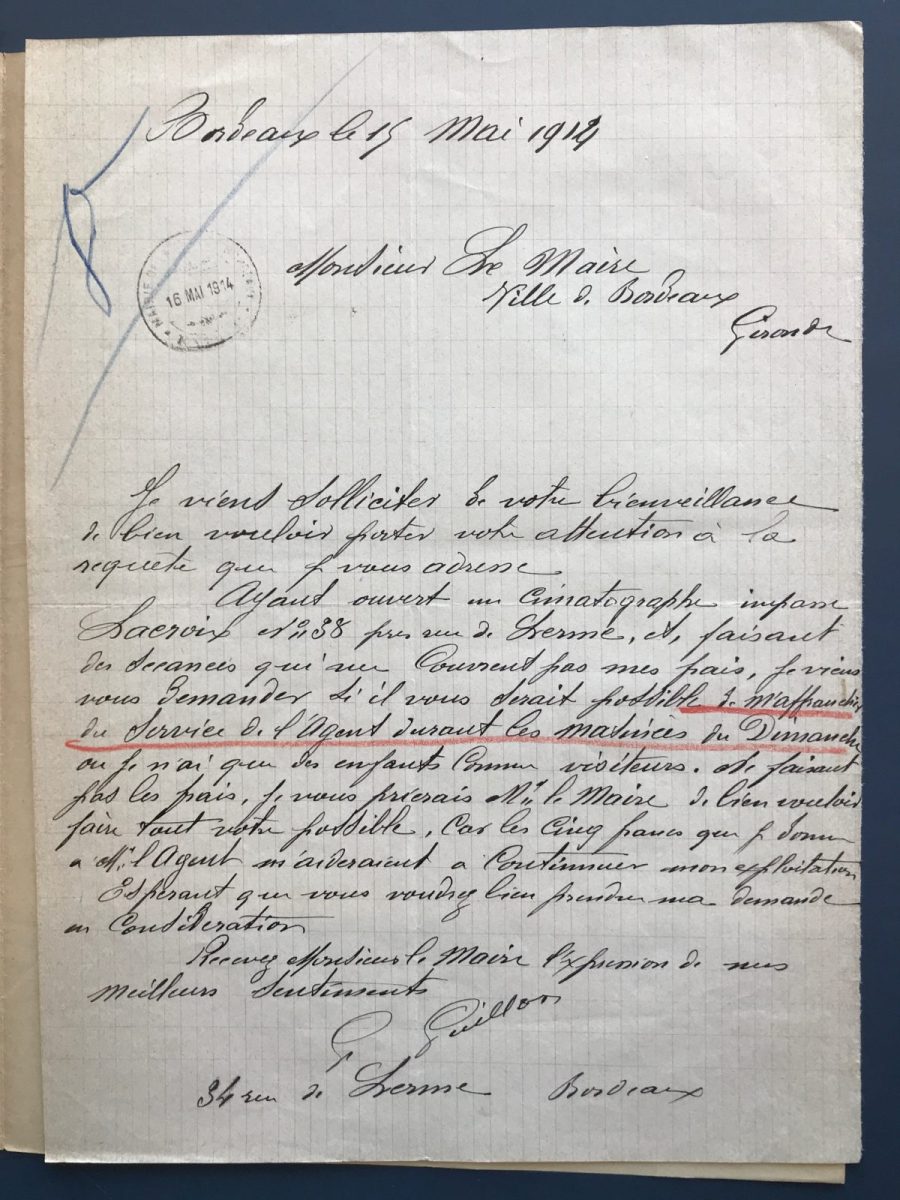 Bordeaux le 15 Mai 1914
16 MAI 1914
Monsieur Le Maire
Ville de Bordeaux
Gironde
Je viens solliciter de votre bienveillance
de bien vouloir porter votre attention à la
requête que je vous adresse
Ayant ouvert un Cimatographe impasse
Lacroix N° 38 pres rue de Lerme, et, faisant
des séances qui ne Couvrent pas mes frais, je viens
vous demander si il vous serait possible de m'affranchir
du Service de l'Agent durant les matinées du Dimanche
ou je n'ai que des enfants Comme visiteurs. Ne faisant
pas les frais, je vous prierais Mr le Maire de bien vouloir
faire tout votre possible, Car les Cinq francs que je donne
a Mr l'Agent m'aideraient a Continuer mon exploitation
Espérant que vous voudrez bien prendre ma demande
en Considération
Recevez Monsieur le Maire l'expression de mes
meilleurs sentiments
G Guillon
34 rue de Lerme Bordeaux